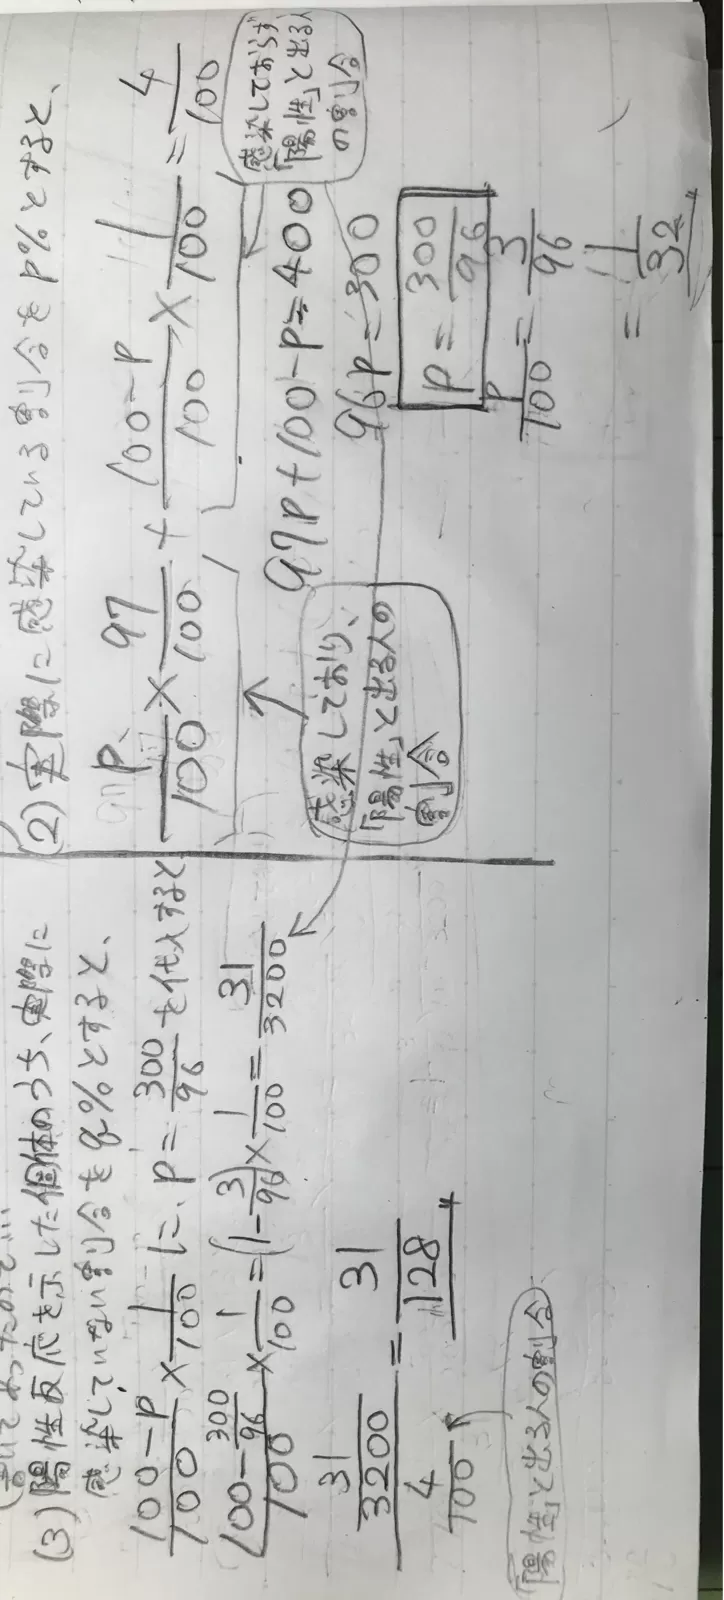 (2) 実際に感染している割合をP%とすると、
P/100 × 97/100 + 100-P/100 × 1/100 = 4/100
感染しておらず
「陽性」と出る
の割合
97P+100-P=400
96P=300
P=300/96
P/100=3/96
=1/32
感染しており、
「陽性」と出る人の
割合
(3) 陽性反応を示した個体のうち、実際に
感染していない割合をq%とすると、
100-P/100 × 1/100 に、P=300/96 を代入すると
100-300/96/100 × 1/100 = (1-3/96) × 1/100 = 31/3200
31/3200/4/100 = 31/128
「陽性」と出る人の割合